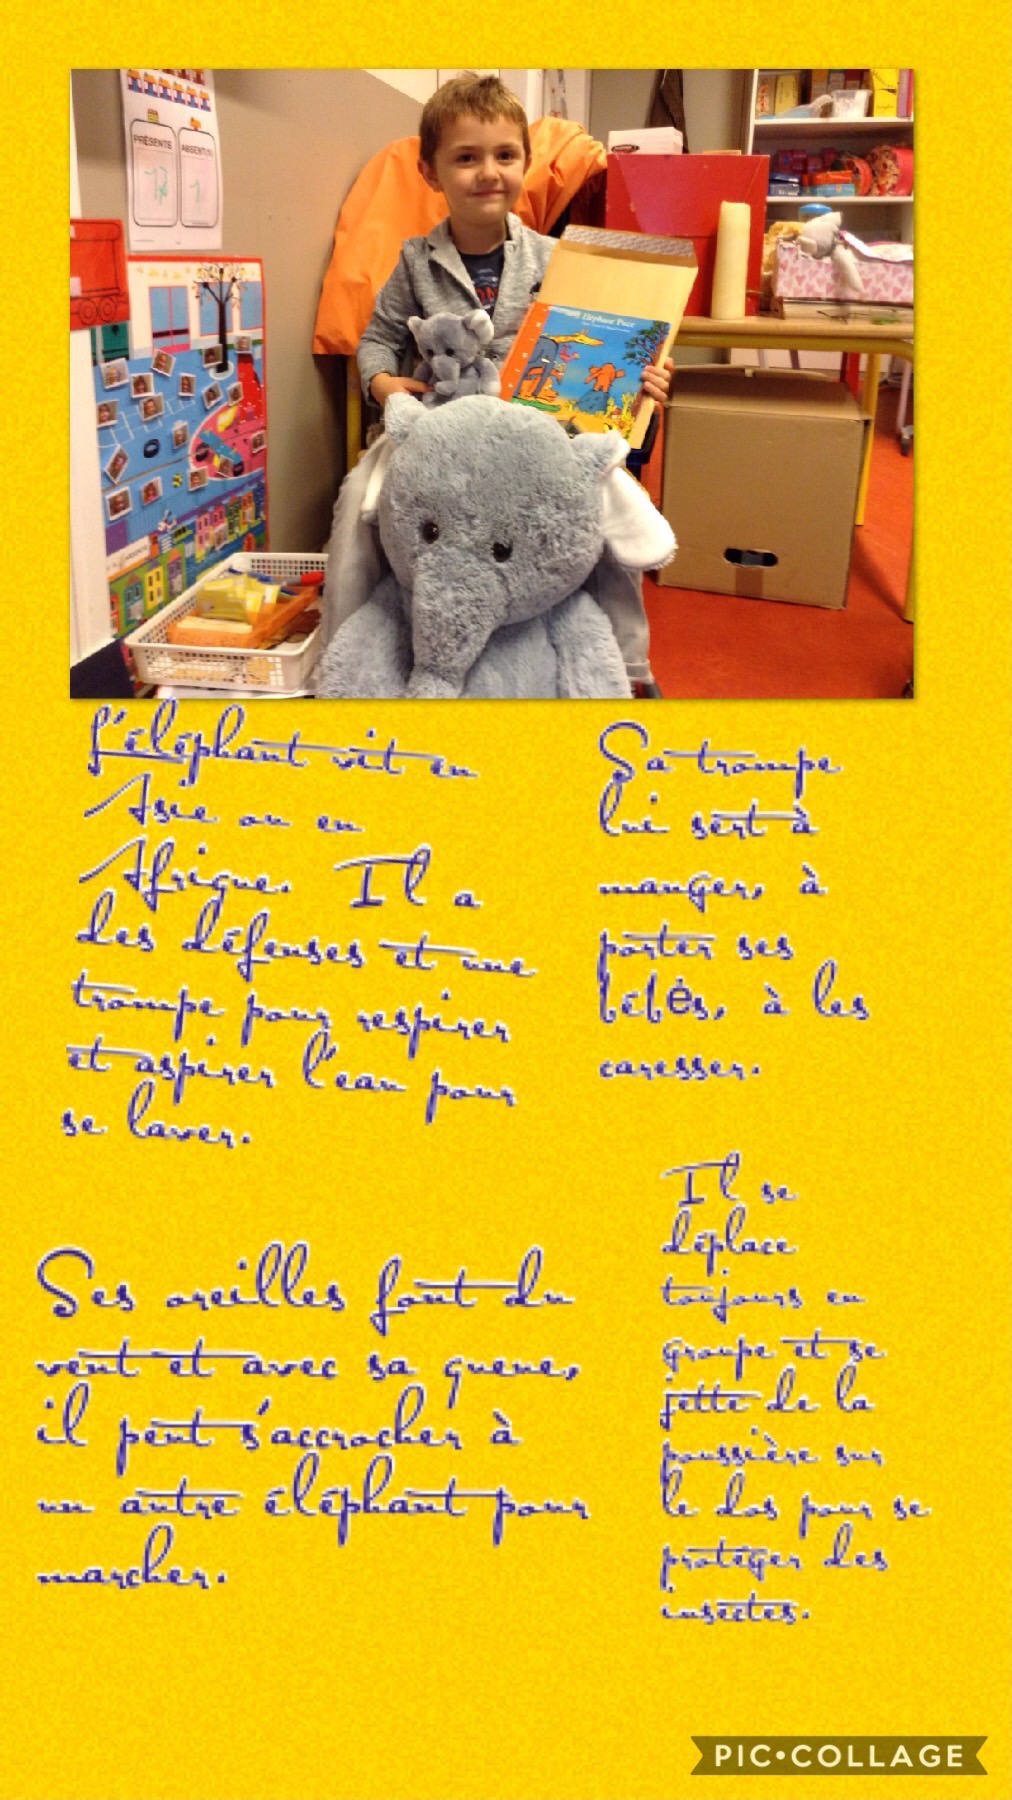 PRÉSENTS
ABSENT(S)
Eléphant Puce
L'éléphant vit en
Asie ou en
Afrique. Il a
des défenses et une
trompe pour respirer
et aspirer l'eau pour
se laver.
Sa trompe
lui sert à
manger, à
porter ses
bébės, à les
caresser.
Ses oreilles font du
vent et avec sa queue,
il peut s'accrocher à
un autre éléphant pour
marcher.
Il se
déplace
toujours en
groupe et se
jette de la
poussière sur
le dos pour se
protéger des
insectes.
PIC•COLLAGE